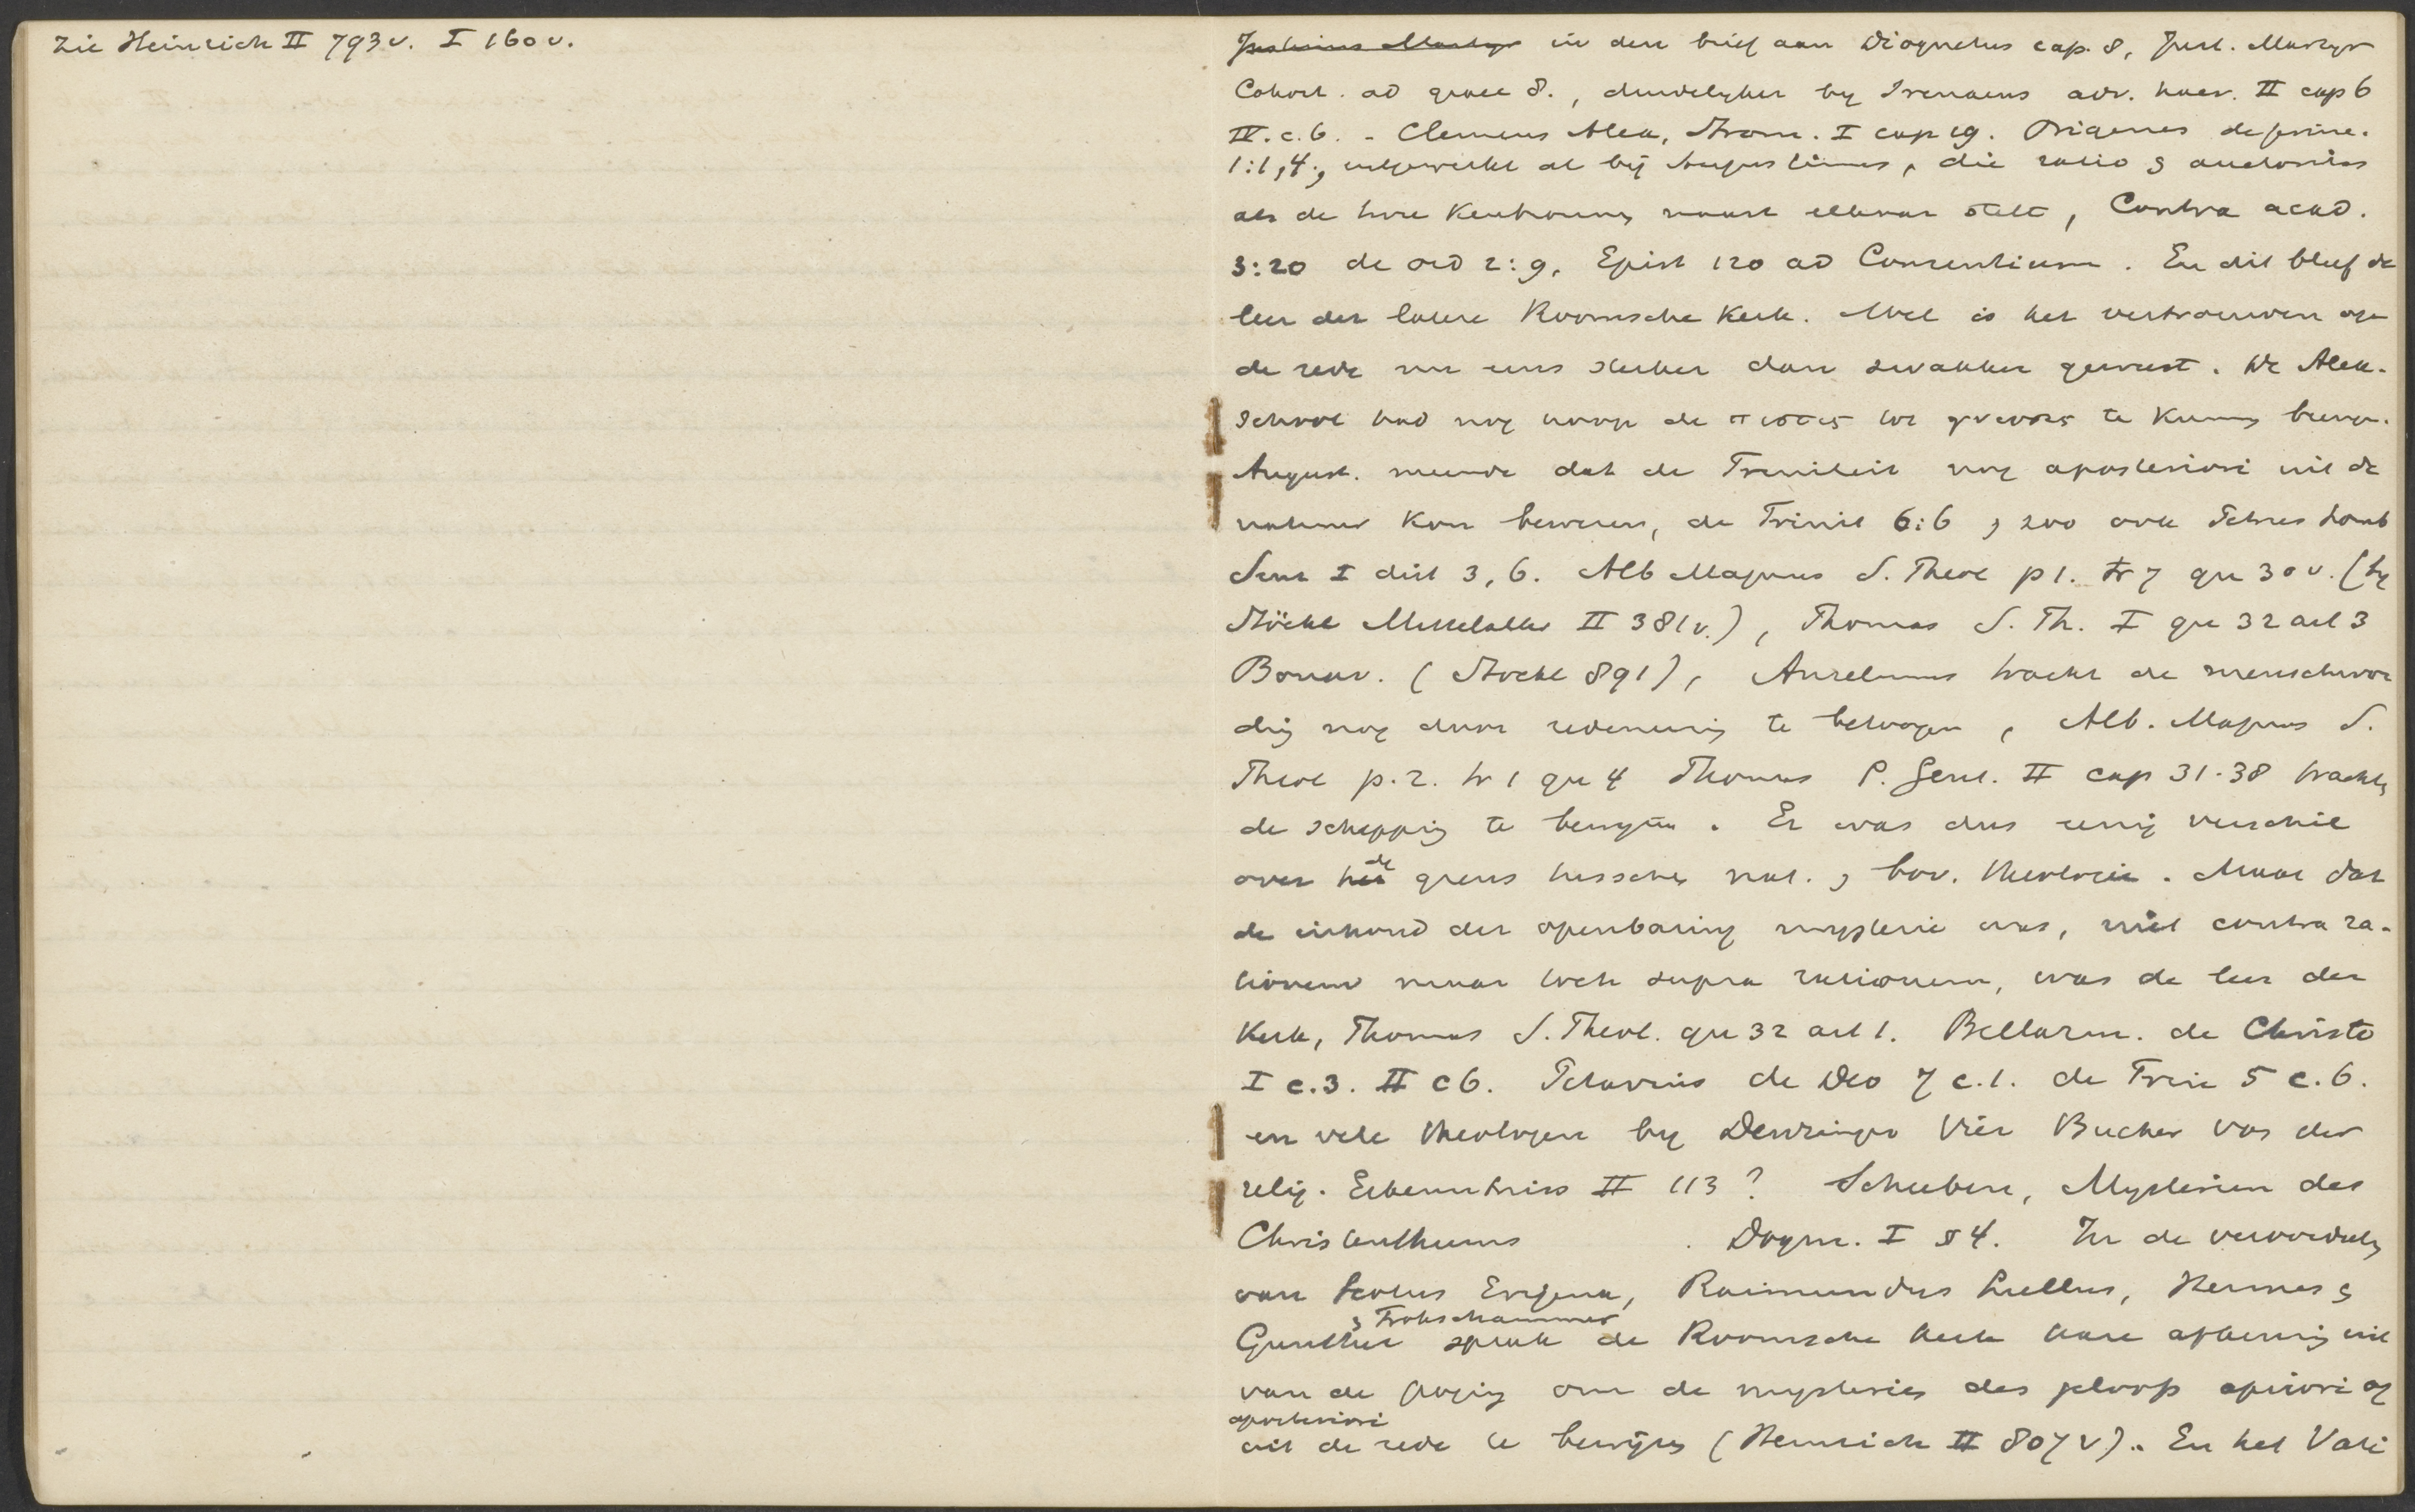 Zie Heinrich II 793 v. I 160 v.
Justinus Martyr in den brief aan Diognetus cap. 8, Just. Martyr
Cohort. ad graec 8., duidelyker by Irenaeus adv. haer. II cap 6
IV. c. 6. - Clemens Alex, Strom. I cap 19. Origenes de princ.
1:1,4., uitgewerkt al bij Augustinus, die ratio & auctoritas
als de twee kenbronnen naast elkaar stelt, Contra acad.
3:20 de ord 2:9. Epist 120 ad Consentium. En dit bleef de
leer der latere Roomsche Kerk. Wel is het vertrouwen op
de rede nu eens sterker dan zwakker geweest. De Alex.
School had nog hoop de πιστις tot γνωσις te kunnen
August. meende dat de Triniteit nog aposteriori uit de
natuur kon bewezen, de Trinit 6:6, zoo ook Petrus Lomb
Sent I dist 3,6. Alb Magnus S. Theol p 1. tr 7 qu 30 v. (by
Stöckl Mittelalter II 381 v.), Thomas S. Th. I qu 32 art 3
Bonav. (Stockl 891), Anselmus tracht de menschwor
ding nog door redeneering te betoogen, Alb. Magnus S.
Theol p. 2. tr 1 qu 4 Thomas S. Gent. II cap 31-38 trachten
de schepping te bewyzen. Er was dus eenig verschil
over het de grens tusschen nat. & bov. theologie. Maar dat
de inhoud der openbaring mysterie was, niet contra ra-
tionem maar toch supra rationem, was de leer der
Kerk, Thomas S. Theol. qu 32 art 1. Bellarm. de Christo
I c. 3. II c 6. Petavius de Deo 7 c. 1. de Trin 5 c. 6.
en vele theologen by Denzinger Vier Bucher von der
relig. Erkenntniss II 113? Scheeben, Mysterien des
Christenthums . Dogm. I § 4. In de veroordeeling
van Scotus Erigena, Raimundus Lullus, Hermes &
& Frohschammer
Gunther sprak de Roomsche kerk hare afkeuring uit
van de poging om de mysteries des geloofs apriori of
aposteriori
uit de rede te bewijzen (Heinrich II 807 v). En het Vati